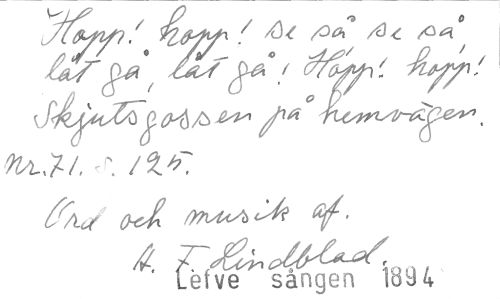 Hopp! hopp! se så se så
låt gå, låt gå! Hopp! hopp!
Skjutsgossen på hemvägen.
Nr. 71. s. 125.
Ord och musik af.
A. F. Lindblad.
Lefve sången 1894